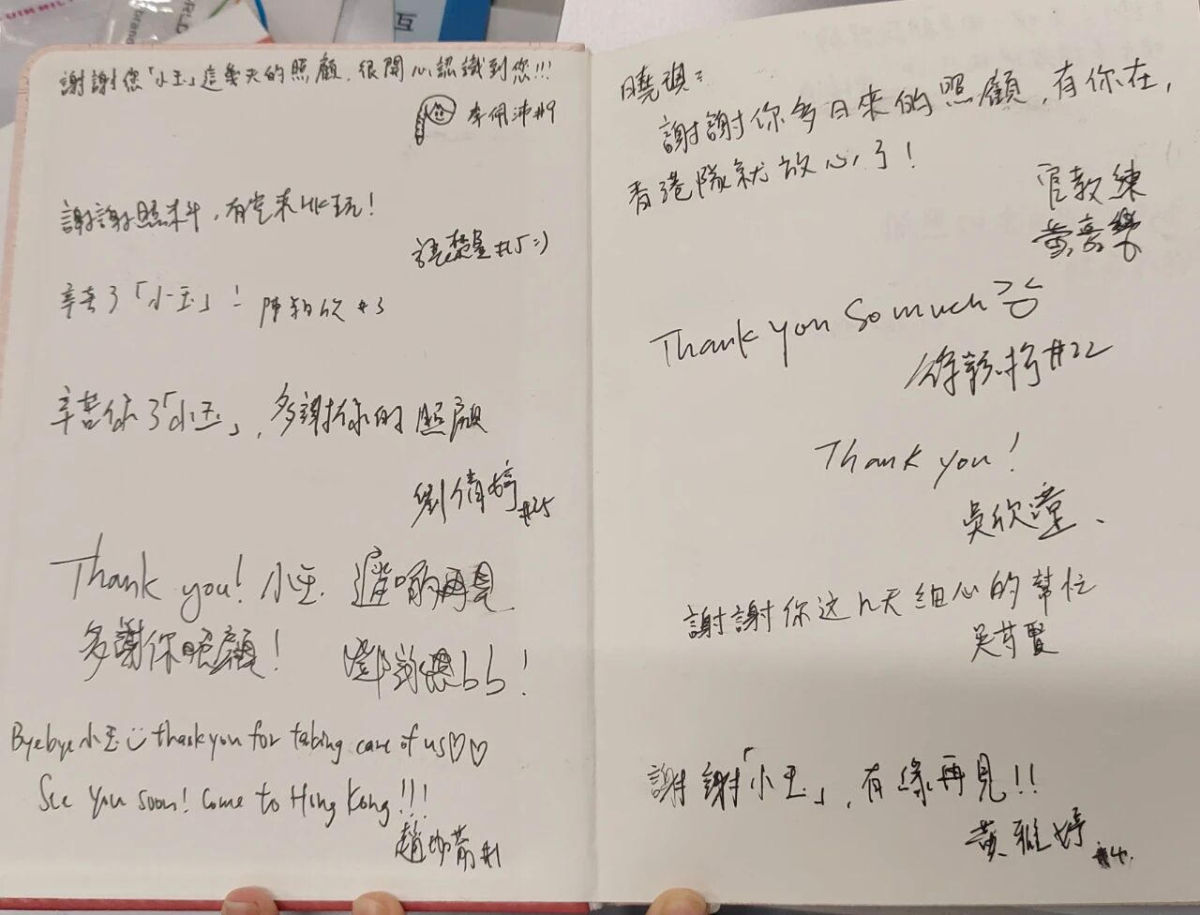 互
謝謝您「小玉」這幾天的照顧，很開心認識到您!!!
李佩沛#9
謝謝照料，有空來HK玩！
#15 =)
辛苦了「小玉」！ 陳 欣 #3
辛苦你了「小玉」，多謝你的照顧
劉倩婷 #25
Thank you! 小玉 遲啲再見
多謝你照顧！ 鄧 bb！
Byebye 小玉 thank you for taking care of us♡♡
See you soon! Come to Hong Kong!!!
趙 #1
曉玥：
謝謝你多日來的照顧，有你在，
香港隊就放心了！
官教練
黃嘉樂
Thank you so much
徐 #22
Thank you!
吳欣潼
謝謝你这几天细心的幫忙
吳芍賢
謝謝「小玉」，有緣再見!!
黃雅婷 #4